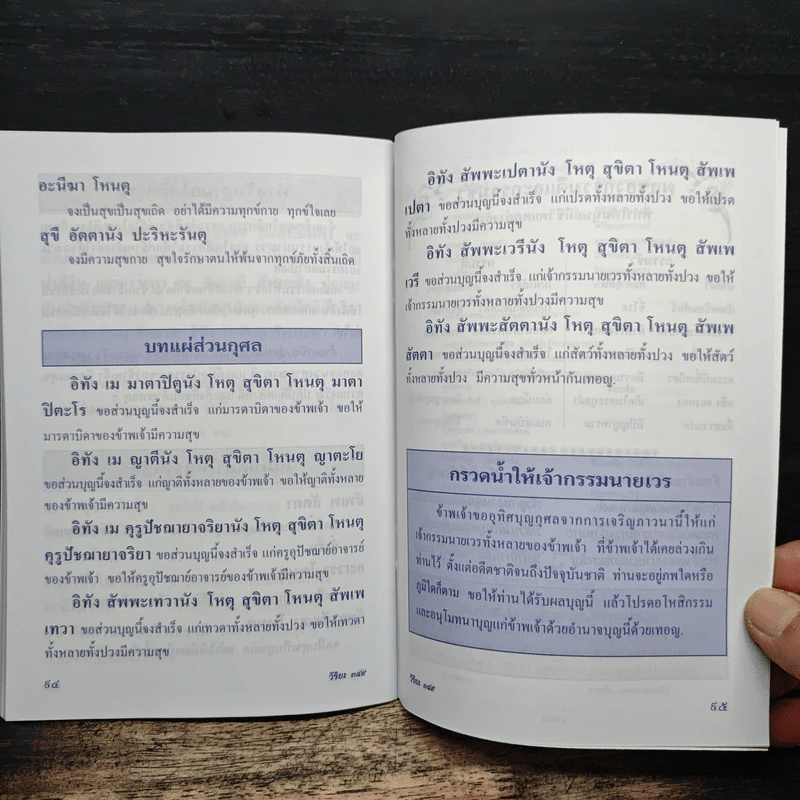 อะนีฆา โหนตุ
จงเป็นสุขเป็นสุขเถิด อย่าได้มีความทุกข์กาย ทุกข์ใจเลย
สุขี อัตตานัง ปะริหะรันตุ
จงมีความสุขกาย สุขใจรักษาตนให้พ้นจากทุกข์ภัยทั้งสิ้นเถิด
บทแผ่ส่วนกุศล
อิทัง เม มาตาปิตูนัง โหตุ สุขิตา โหนตุ มาตา
ปิตะโร ขอส่วนบุญนี้จงสำเร็จ แก่มารดาบิดาของข้าพเจ้า ขอให้
มารดาบิดาของข้าพเจ้ามีความสุข
อิทัง เม ญาตีนัง โหตุ สุขิตา โหนตุ ญาตะโย
ขอส่วนบุญนี้จงสำเร็จ แก่ญาติทั้งหลายของข้าพเจ้า ขอให้ญาติทั้งหลาย
ของข้าพเจ้ามีความสุข
อิทัง เม คุรูปัชฌายาจริยานัง โหตุ สุขิตา โหนตุ
คุรูปัชฌายาจริยา ขอส่วนบุญนี้จงสำเร็จ แก่ครูอุปัชฌาย์อาจารย์
ของข้าพเจ้า ขอให้ครูอุปัชฌาย์อาจารย์ของข้าพเจ้ามีความสุข
อิทัง สัพพะเทวานัง โหตุ สุขิตา โหนตุ สัพเพ
เทวา ขอส่วนบุญนี้จงสำเร็จ แก่เทวดาทั้งหลายทั้งปวง ขอให้เทวดา
ทั้งหลายทั้งปวงมีความสุข
๙๔ วิริยะ ๓๔๙
อิทัง สัพพะเปตานัง โหตุ สุขิตา โหนตุ สัพเพ
เปตา ขอส่วนบุญนี้จงสำเร็จ แก่เปรตทั้งหลายทั้งปวง ขอให้เปรต
ทั้งหลายทั้งปวงมีความสุข
อิทัง สัพพะเวรีนัง โหตุ สุขิตา โหนตุ สัพเพ
เวรี ขอส่วนบุญนี้จงสำเร็จ แก่เจ้ากรรมนายเวรทั้งหลายทั้งปวง ขอให้
เจ้ากรรมนายเวรทั้งหลายทั้งปวงมีความสุข
อิทัง สัพพะสัตตานัง โหตุ สุขิตา โหนตุ สัพเพ
สัตตา ขอส่วนบุญนี้จงสำเร็จ แก่สัตว์ทั้งหลายทั้งปวง ขอให้สัตว์
ทั้งหลายทั้งปวง มีความสุขทั่วหน้ากันเทอญ.
กรวดน้ำให้เจ้ากรรมนายเวร
ข้าพเจ้าขออุทิศบุญกุศลจากการเจริญภาวนานี้ให้แก่
เจ้ากรรมนายเวรทั้งหลายของข้าพเจ้า ที่ข้าพเจ้าได้เคยล่วงเกิน
ท่านไว้ ตั้งแต่อดีตชาติจนถึงปัจจุบันชาติ ท่านจะอยู่ภพใดหรือ
ภูมิใดก็ตาม ขอให้ท่านได้รับผลบุญนี้ แล้วโปรดอโหสิกรรม
และอนุโมทนาบุญแก่ข้าพเจ้าด้วยอำนาจบุญนี้ด้วยเทอญ.
วิริยะ ๓๔๙ ๙๕